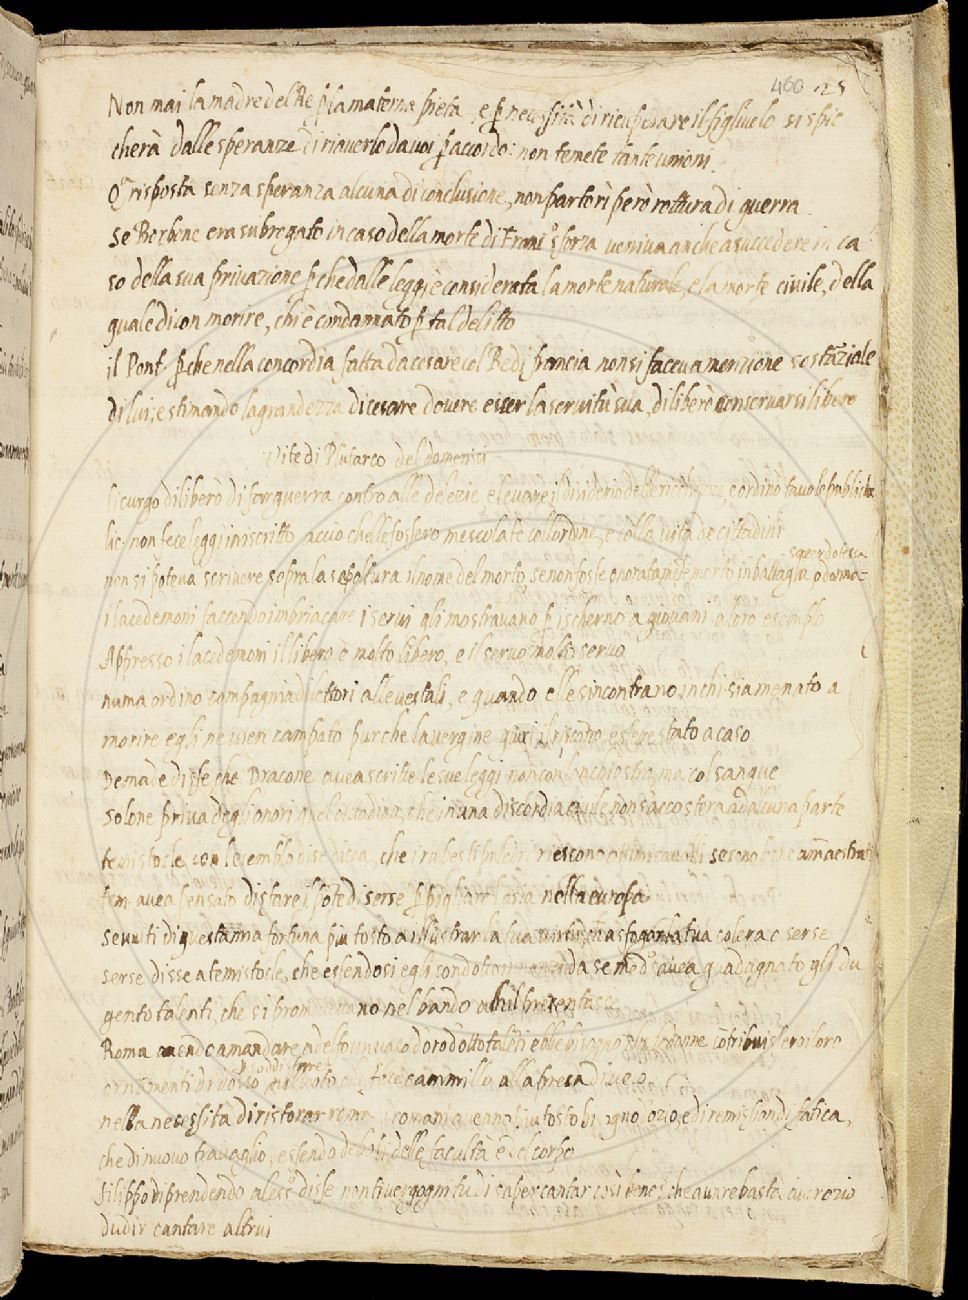 460 25
Non mai la madre del Re p la materna pietà, e p necessità di ricuperare il figliuolo si spic
cherà dalle speranze di riaverlo da voi p accordo: non temete tante unioni.
Q risposta senza speranza alcuna di conclusione, non partorì però rottura di guerra
Se Borbone era subregato in caso della morte di Fran.co Sforza veniva anche a succedere in ca
so della sua privazione p che dalle leggi è considerata la morte naturale, e la morte civile, della
quale dicon morire, chi è condannato p tal delitto
il Pont. p che nella concordia fatta da cesare col Re di francia non si faceva menzione sostāziale
di lui, estimando la grandezza di cesare dovere esser la servitù sua, diliberò conservarsi libero
Vite di Plutarco del domenici
licurgo diliberò di far guerra contro alle delezie, e levare il disiderio delle richezze, e ordinò tavole publiche
lic. non fece leggi in iscritto acciò chelle fossero mescolate collordine, e colla vita de cittadini
non si poteva scrivere sopra la sepoltura il nome del morto, se non fosse onoratamēte morto in battaglia, o donna
sacerdotessa
i lacedemoni faccendo imbriacare i servi gli mostravano p ischerno a giovani a loro esemplo
Appresso i lacedemoni il libero è molto libero, e il servo molto servo
numa ordinò compagnia di littori alle vestali, e quando elle sincontrano in chi sia menato a
morire egli ne vien campato purche la vergine giuri il riscontro essere stato a caso
Demade disse che Dracone avea scritte le sue leggi non con linchiostro, ma col sangue
Solone priva degli onori quel cittadino, che in una discordia civile non saccosterà ad alcuna parte
temistocle con lesemplo di se dicea, che i rubesti puledri riescono ottimi cavalli se sono bene ammaestrati
tem. avea pensato disfare il pōte di serse p pigliare lasia nella europa
Serviti di questa mia fortuna più tosto a illustrar la tua virtù, che a sfogar la tua colera a serse
Serse disse a temistocle, che essendosi egli condotto in da se med.o avea guadagnato gli du
gento talenti, che si promettevano nel bando a chil presentasse
Roma avendo a mandare n delfo un vaso d oro d otto talēti ebbe bisogno che le donne cōtribuissero i loro
ornamenti di dosso p soddisfare al voto che fece cammillo alla presa di veio
nella necessità di ristorar roma i romani aveano più tosto bisogno d ozio, e di remission di fatica,
che di nuovo travaglio, essendo deboli delle facultà e del corpo
filippo riprendendo aless.o disse non ti vergogni tu di saper cantar così bene? che a un re basta aver ozio
dudir cantare altrui